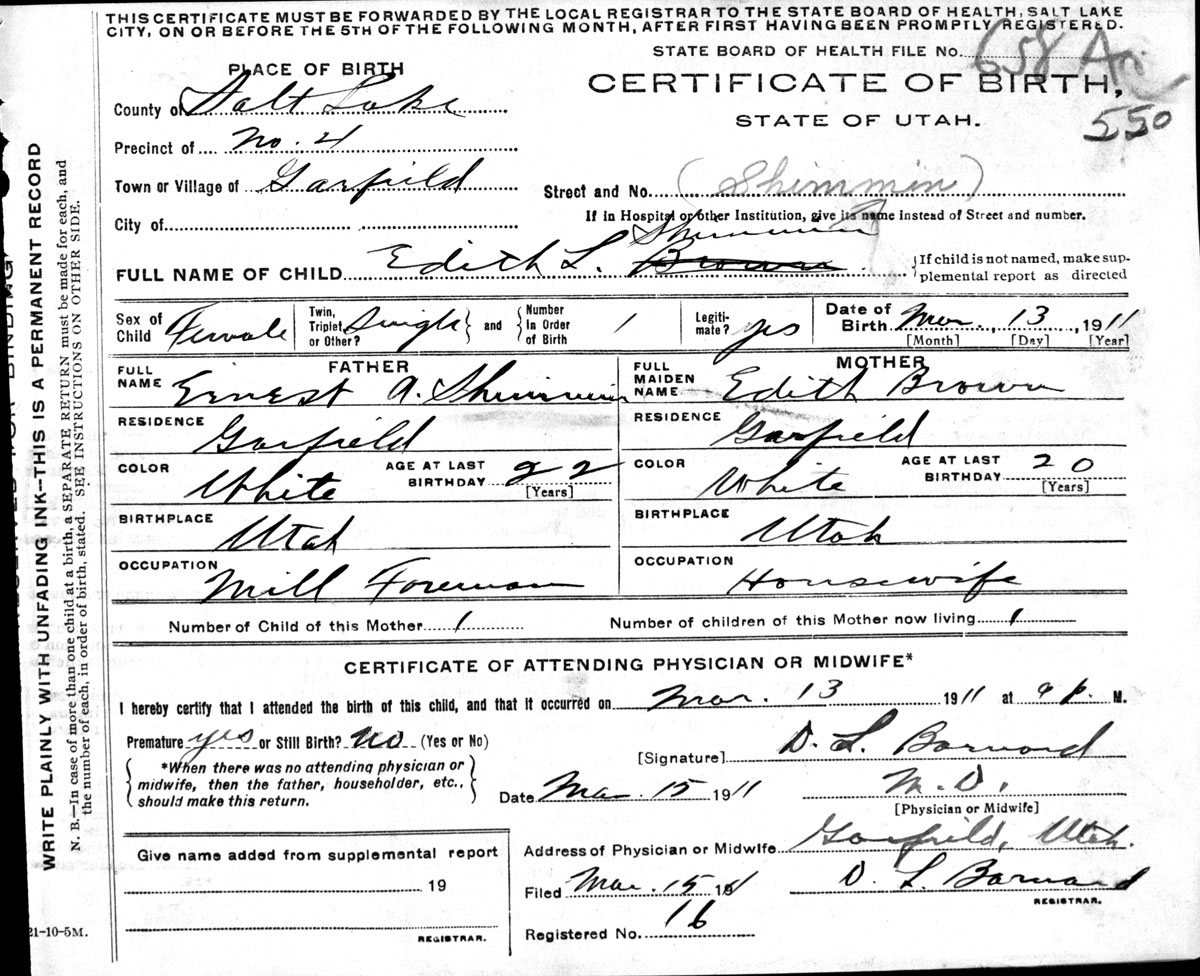 THIS CERTIFICATE MUST BE FORWARDED BY THE LOCAL REGISTRAR TO THE STATE BOARD OF HEALTH, SALT LAKE
CITY, ON OR BEFORE THE 5TH OF THE FOLLOWING MONTH, AFTER FIRST HAVING BEEN PROMPTLY REGISTERED.
STATE BOARD OF HEALTH FILE No. 658
PLACE OF BIRTH
CERTIFICATE OF BIRTH,
550
STATE OF UTAH.
County of Salt Lake
Precinct of No. 4
Town or Village of Garfield
Street and No. (Shimmin)
If in Hospital or other Institution, give its name instead of Street and number.
City of
Shimmin
FULL NAME OF CHILD Edith L. Brown
{If child is not named, make sup-
plemental report as directed
Sex of Child Female
Twin, Triplet or Other? Single
and
Number In Order of Birth 1
Legiti-mate? yes
Date of Birth Mar. 13, 1911
[Month] [Day] [Year]
FATHER
FULL NAME Ernest A. Shimmin
RESIDENCE Garfield
COLOR White
AGE AT LAST BIRTHDAY 22
[Years]
BIRTHPLACE Utah
OCCUPATION Mill Foreman
MOTHER
FULL MAIDEN NAME Edith Brown
RESIDENCE Garfield
COLOR White
AGE AT LAST BIRTHDAY 20
[Years]
BIRTHPLACE Utah
OCCUPATION Housewife
Number of Child of this Mother 1
Number of children of this Mother now living 1
CERTIFICATE OF ATTENDING PHYSICIAN OR MIDWIFE*
I hereby certify that I attended the birth of this child, and that it occurred on Mar. 13 1911 at 9 p. M.
Premature yes or Still Birth? No (Yes or No)
[Signature] D. L. Barnard
*When there was no attending physician or
midwife, then the father, householder, etc.,
should make this return.
Date Mar. 15 1911
M. D.
[Physician or Midwife]
Give name added from supplemental report
19
REGISTRAR.
Address of Physician or Midwife Garfield, Utah.
Filed Mar. 15 1911
D. L. Barnard
REGISTRAR.
Registered No. 16
21-10-5M.
WRITE PLAINLY WITH UNFADING INK—THIS IS A PERMANENT RECORD
N. B.—In case of more than one child at a birth, a SEPARATE RETURN must be made for each, and
the number of each, in order of birth, stated. SEE INSTRUCTIONS ON OTHER SIDE.